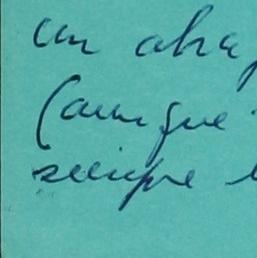 un abra
(aunque
siempre